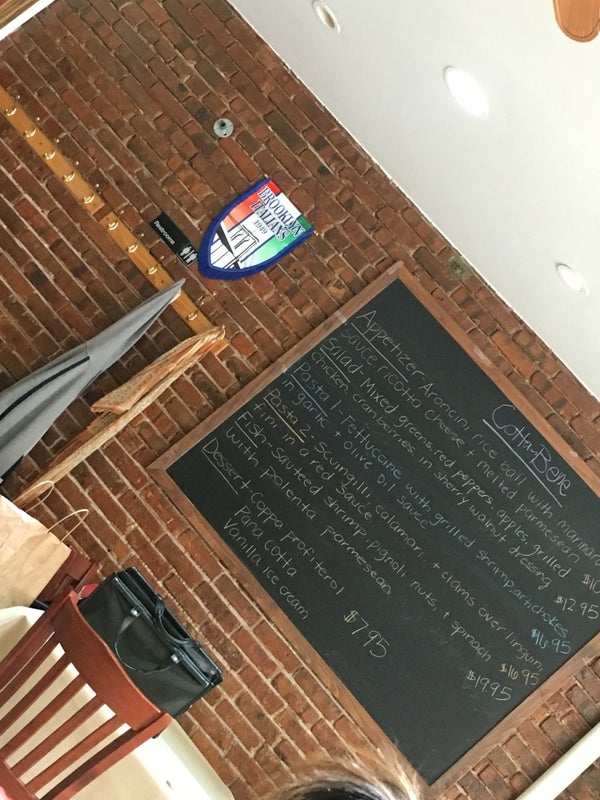 BROOKLYN
ITALIANS
1949
Restrooms
Cotta-Bene
Appetizer-Aroncini rice ball with marinara
sauce ricotta cheese + melted parmesean $10
Salad-Mixed greens, red peppers, apples, grilled
chicken, cranberries, in sherry walnut dressing $12.95
Pasta 1-Fettuccine with grilled shrimp, artichokes
in garlic + olive oil sauce $16.95
Pasta 2-Scungilli, calamari, + clams over linguin
fini in a red sauce $16.95
Fish-Sauteed shrimp, pignoli, nuts, + spinach
with polenta parmesean $19.95
Dessert-Coppa profiterol
Pana cotta $7.95
Vanilla ice cream